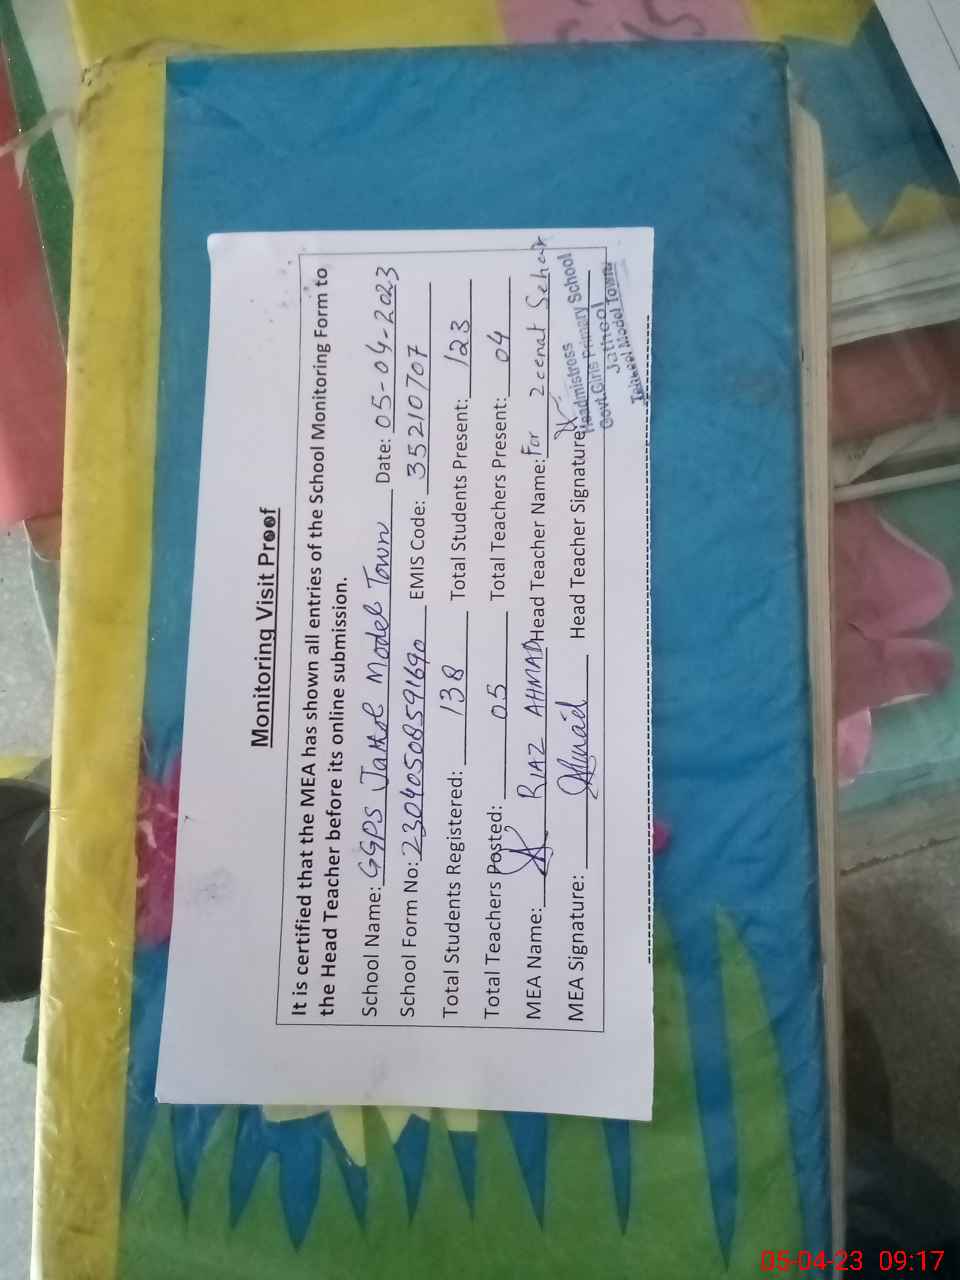 Monitoring Visit Proof
It is certified that the MEA has shown all entries of the School Monitoring Form to
the Head Teacher before its online submission.
School Name: GGPS Jathol Model Town Date: 05-04-2023
School Form No: 23040508591690 EMIS Code: 35210707
Total Students Registered: 138 Total Students Present: 123
Total Teachers Posted: 05 Total Teachers Present: 04
MEA Name: RIAZ AHMAD Head Teacher Name: For Zeenat Sehar
MEA Signature: Head Teacher Signature:
Headmistress
Govt.Girls Primary School
Jathool
Tehseel Model Town
05-04-23 09:17